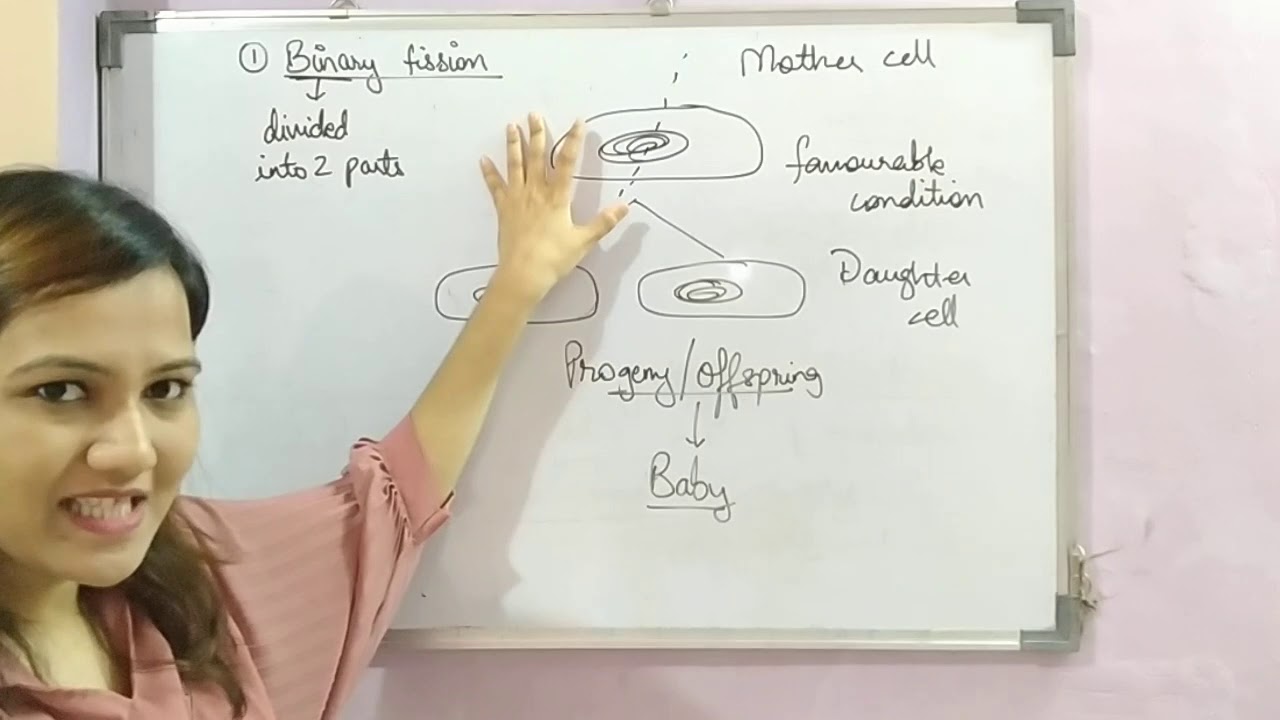 ① Binary fission
↓
divided
into 2 parts
Mother cell
favourable
condition
Daughter
cell
Progeny/offspring
↓
Baby